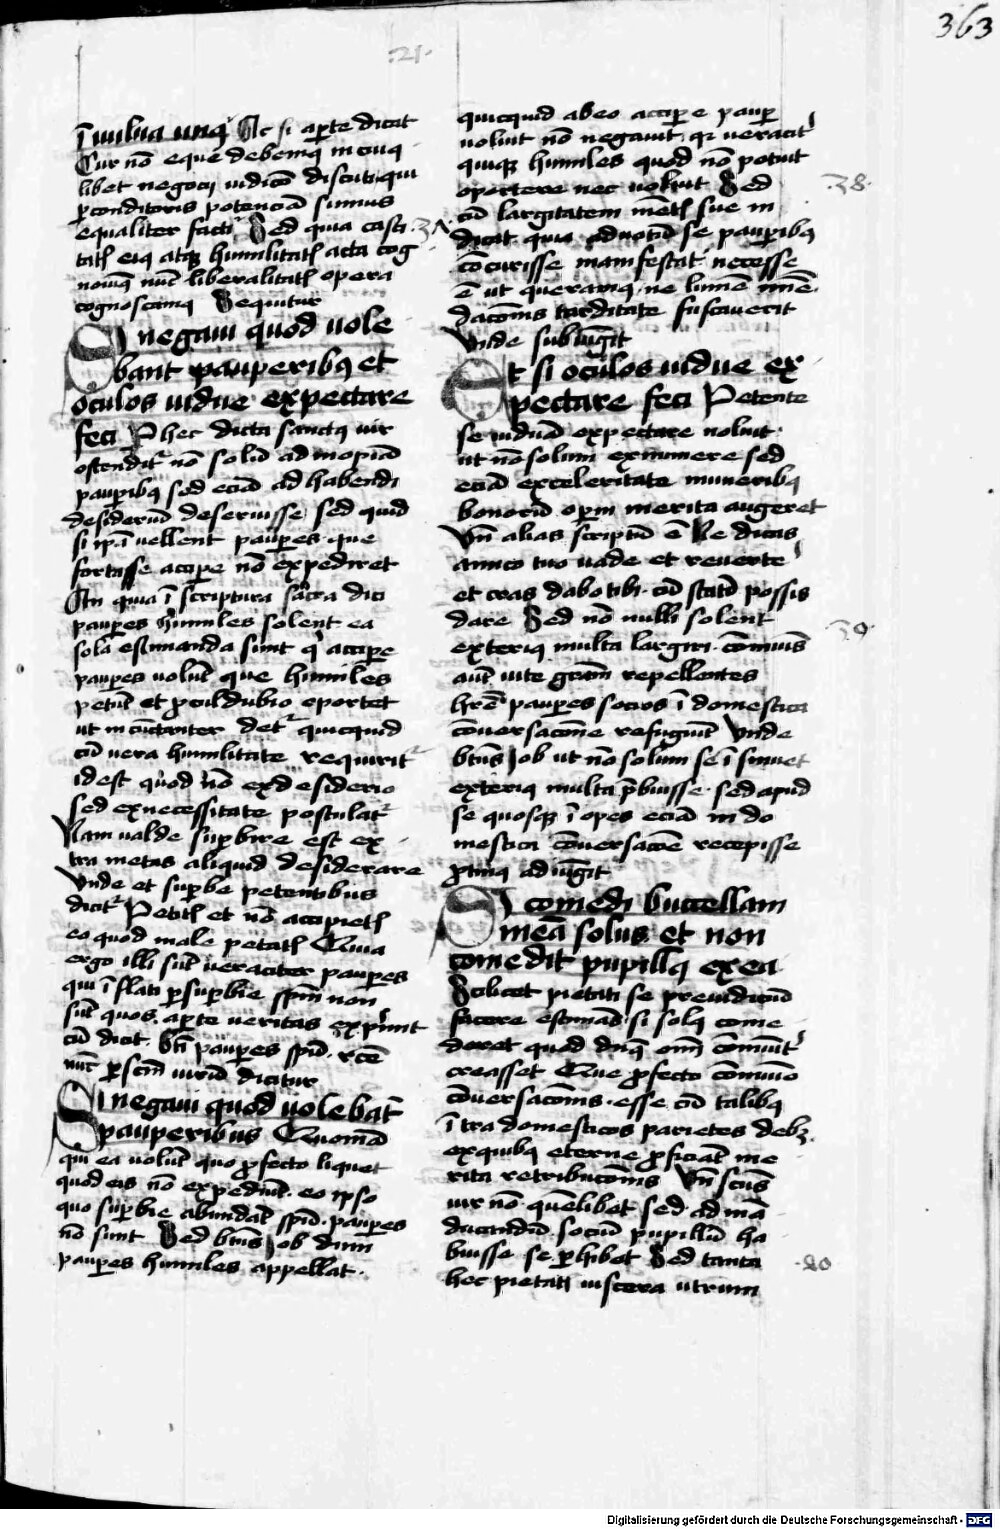 363
.21.
ī wulua unus Ac si aperte dicat
Cur nō eque debemus in cuius
libet negocii iudicō discuti qui
ꝑ conditoris potenciā sumus
equaliter facti Sed quia casti
tatis eius atque humilitatis acta cog
nouimus nūc liberalitatis opera
cognoscamus Sequitur
Si negaui quod uole
bant pauperibus et
oculos uidue expectare
feci Per hec dicta sanctus uir
ostenditur nō solū ad inopiā
pauperibus sed eciā ad habendi
desideriū deseruisse sed quid
si ipā uellent pauperes que
fortasse accipe nō expediret
An quia ī scriptura sacra dici
pauperes humiles solent ea
sola estimanda sunt que accipe
pauperes uolunt que humiles
petunt et proculdubio oportet
ut incunctanter detur quicquid
cū uera humilitate requiritur
id est quod nō ex desiderio
sed ex necessitate postulatur
Nam ualde superbire est ex
tra metas aliquid desiderare
Vnde et superbe petentibus
dicitur Petitis et nō accipietis
eo quod male petatis Quia
ergo illi sunt ueraciter pauperes
qui ī flati ꝑ superbie spm non
sunt quos aperte ueritas exprimit
cū dicit Bti pauperes spū rcē
nunc per scm uirū dicitur
Si negaui quod uolebāt
pauperibus Quoniā
qui ea uolunt quo profecto liquet
quod eis nō expediunt eo ipso
quo superbie abundāt spū pauperes
nō sunt Sed btus Job dum
pauperes humiles appellat
quicquid ab eo accipere pauper
uoluit nō negauit quia ueraciter
quique humiles quod nō potuit
oportere nec uoluit Sed
38
cū largitatem mētis sue in
dicat quia ad uotū se pauperibus
cōcurisse manifestat necesse
ē ut queramus ne lumē mūe
dacōnis tarditate fuscauerit
Vnde subiungit
Et si oculos uidue ex
pectare feci Petente
se uiduā expectare noluit
ut nō solum ex munere sed
eciā ex celeritate muneribus
bonorū operum merita augeret
Vn alias scriptū ē Ne dicas
amico tuo uade et reuerte
et cras dabo tibi cū statī possis
dare Sed nō nulli solent
39
exterius multa largiri cōmunis
autem uite gratiam repellentes
habere pauperes socios ī domestica
cōuersacōne refugiunt Vnde
btus Job ut nō solum se ī sinuet
exterius multa prebuisse sed apud
se quosque ī opes eciā in do
mestica cōuersacōe recepisse
protinus adiungit
Si comedi buccellam
meā solus et non
comedit pupillus ex ea
Scilicet pietati se preiudiciū
facere estimās si solus come
deret quod dnus omn cōmunit
creasset Que profecto cōmunio
cōuersacōnis esse cū talibus
ī tra domesticos parietes debz
ex quibus eterne proficiāt me
rita retribucōnis Vn scūs
uir nō quēlibet sed ad mā
ducandū sociū pupillū ha
buisse se perhibet Sed tanta
40
hec pietatis uiscera utrum
Digitalisierung gefördert durch die Deutsche Forschungsgemeinschaft - DFG